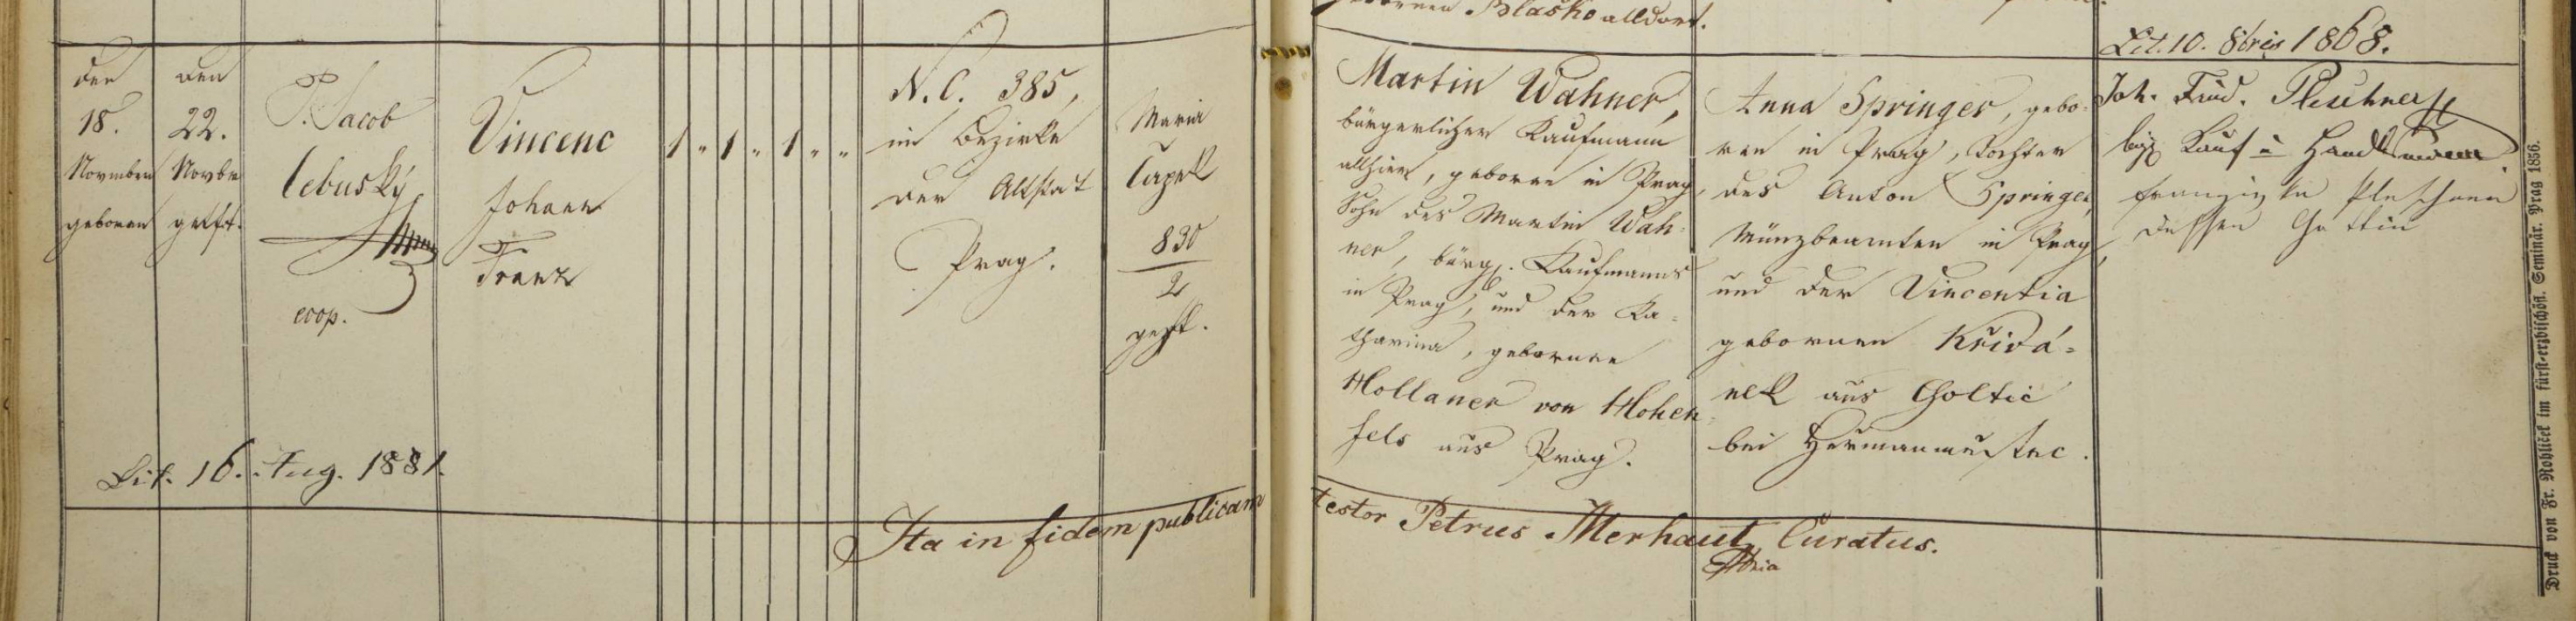 gebornen Blasko alldort.
Lit. 10. 8bris 1868.
den
18.
November
geboren
den
22.
Novber
getft.
P. Jacob
Lebuský
coop.
Vincenc
Johann
Franz
1 " 1 " 1 " "
N. C. 385,
im Bezirke
der Altstat
Prag.
Maria
Čapek
830
2
gepft.
Lit. 16. Aug. 1881.
Martin Wahner,
bürgerlicher Kaufmann
allhier, geboren in Prag,
Sohn des Martin Wah-
ner, bürg. Kaufmanns
in Prag, und der Ka-
tharina, gebornen
Hollaner von Hohen-
fels aus Prag.
Anna Springer, gebo-
ren in Prag, Tochter
des Anton Springer,
Münzbeamten in Prag,
und der Vincentia
gebornen Křivá-
nek aus Choltic
bei Hermanmestec.
Joh. Frid. Pleschner
Kauf u Handlsmann
Franziska Pleschner
dessen Gattin
Ita in fidem publicam testor Petrus Merhaut, Curatus.
Druck von Fr. Rohliček im fürst-erzbischöfl. Seminär. Prag 1856.